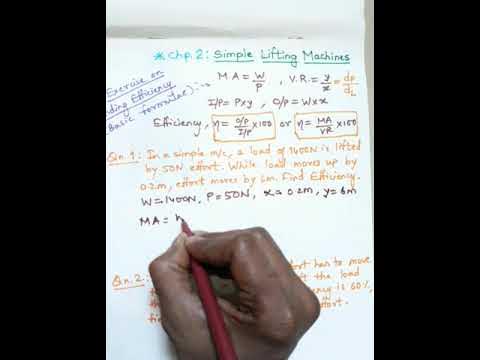 * Chp. 2: Simple Lifting Machines
Exercise on
ding Efficiency
Basic formulae):-
MA = W/P , V.R. = y/x = dP/dL
I/P = P×y , O/P = W×x
Efficiency, η = O/P / I/P ×100 or η = MA/VR ×100
Qn.1: In a simple m/c, a load of 1400N is lifted
by 50N effort. While load moves up by
0.2m, effort moves by 6m. Find Efficiency.
W=1400N, P=50N, x=0.2m, y=6m
MA =
Qn.2: fort has to move
t the load
iency is 60%,
fort.